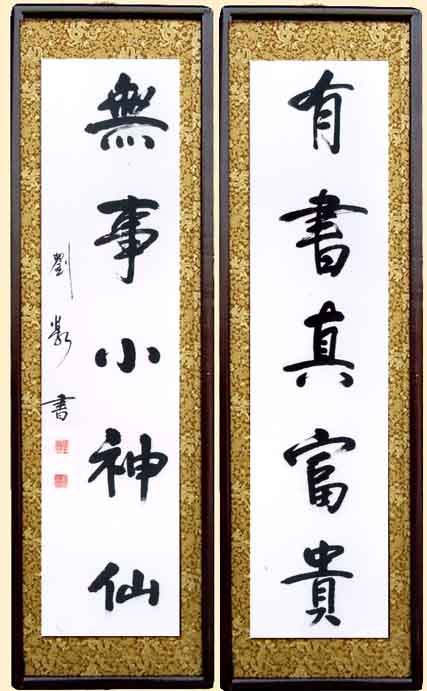 有書真富貴
無事小神仙
劉
書